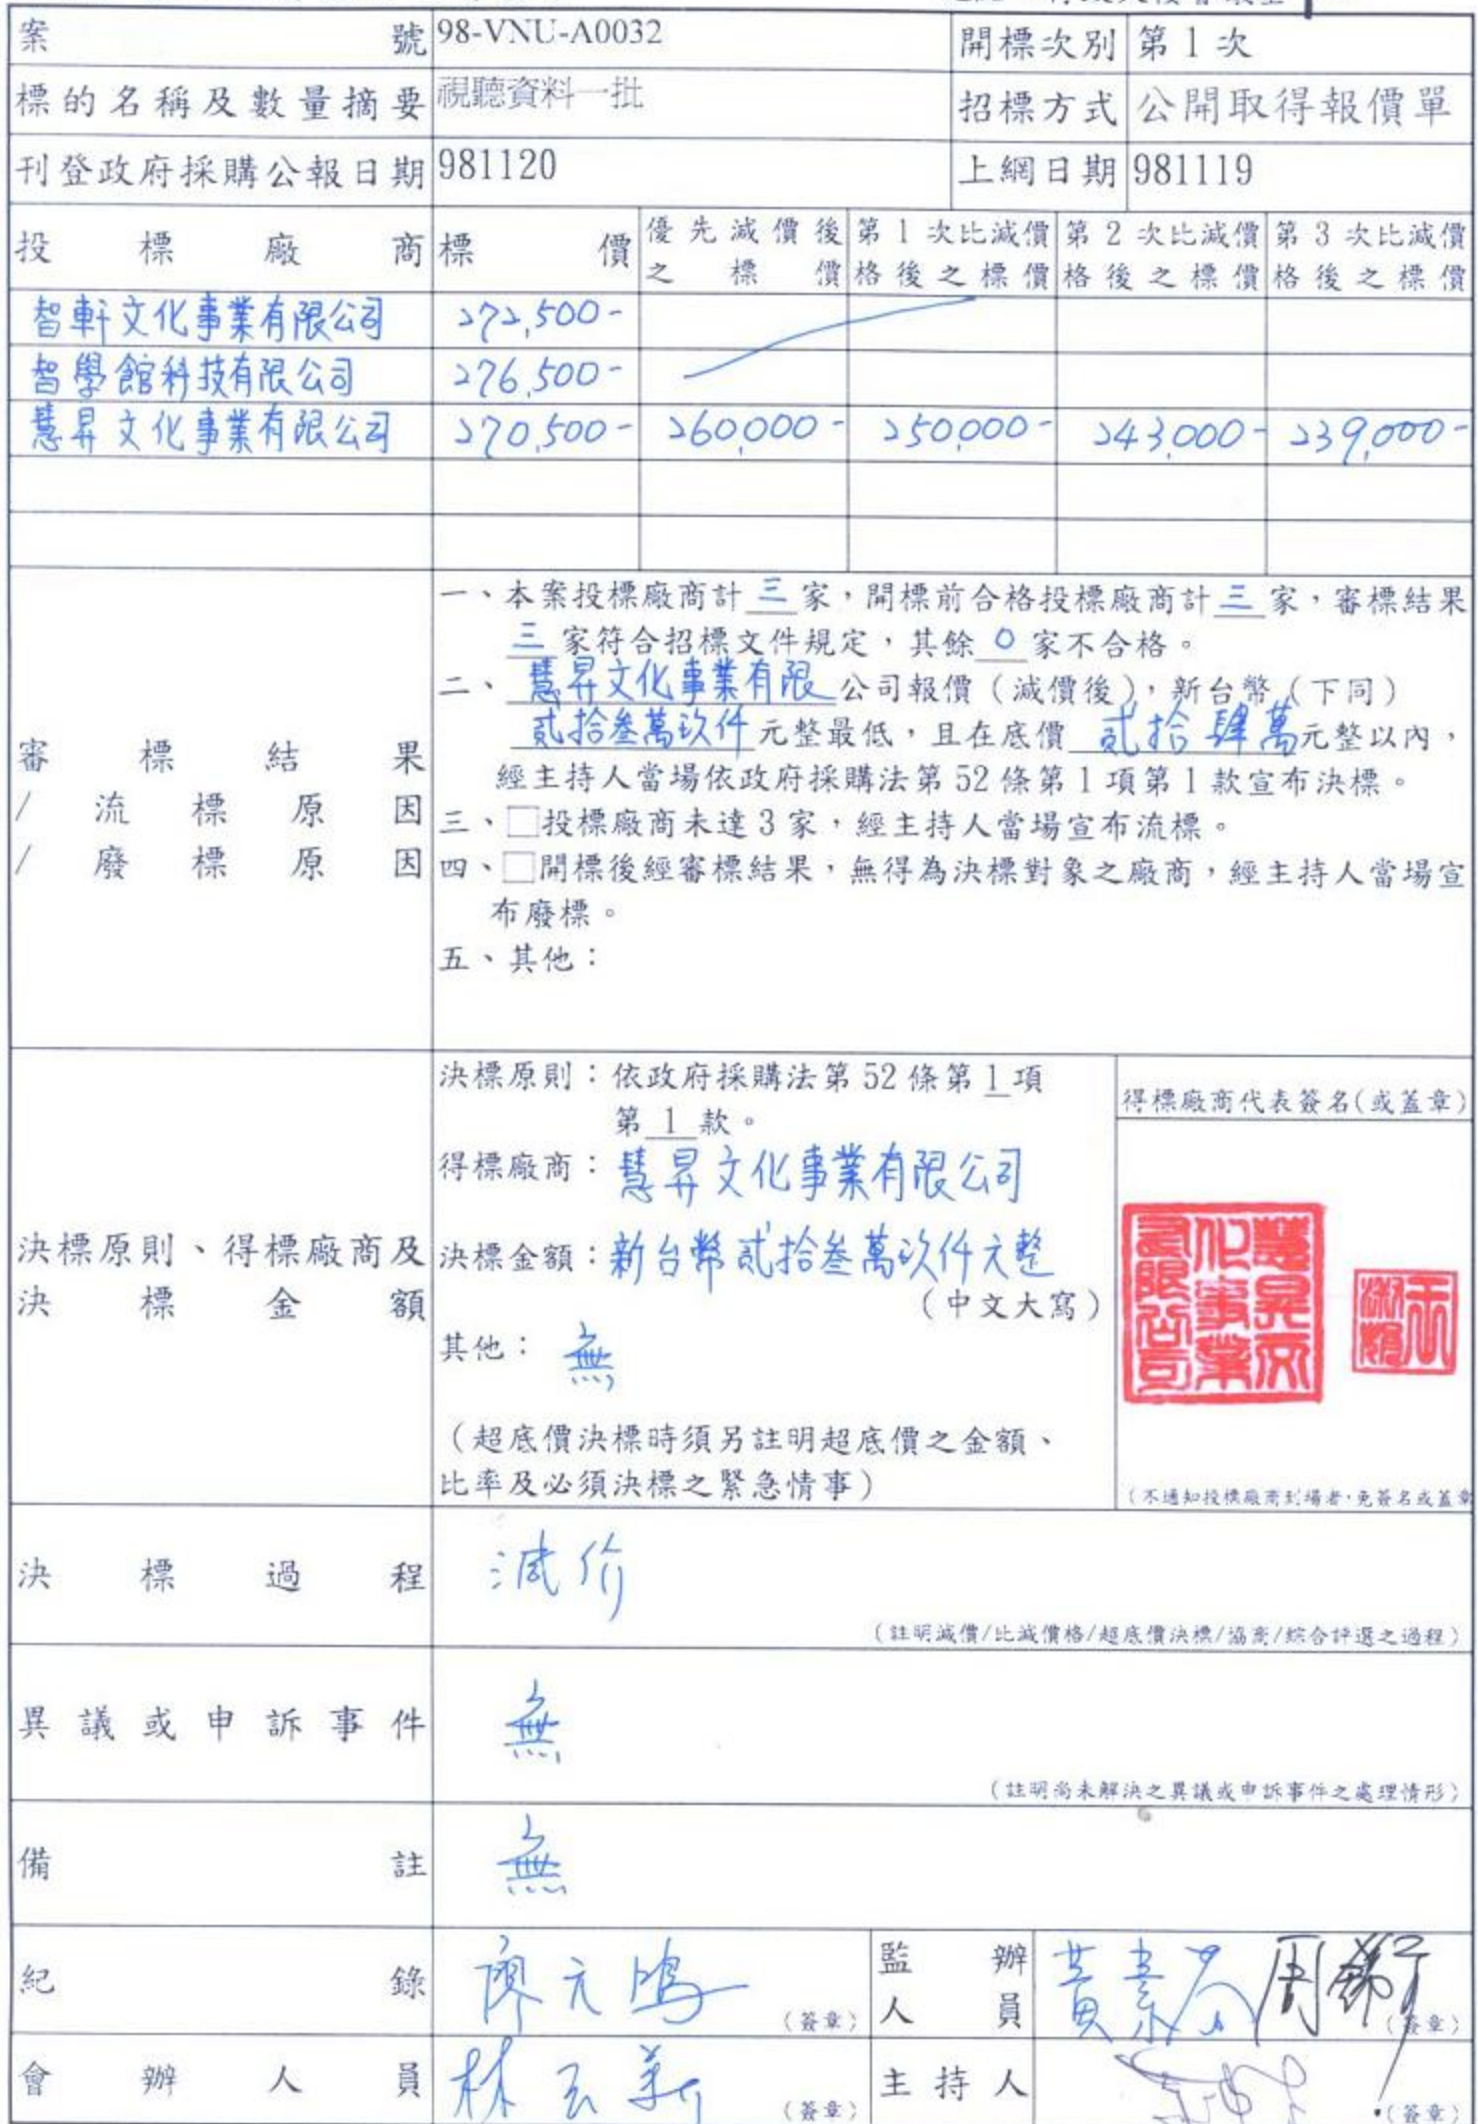 案號 98-VNU-A0032 開標次別 第1次
標的名稱及數量摘要 視聽資料一批 招標方式 公開取得報價單
刊登政府採購公報日期 981120 上網日期 981119
投標廠商 標價 優先減價後之標價 第1次比減價格後之標價 第2次比減價格後之標價 第3次比減價格後之標價
智軒文化事業有限公司 272,500-
智學館科技有限公司 276,500-
慧昇文化事業有限公司 270,500- 260,000- 250,000- 243,000- 239,000-
審標結果
/流標原因
/廢標原因
一、本案投標廠商計三家，開標前合格投標廠商計三家，審標結果
三家符合招標文件規定，其餘0家不合格。
二、慧昇文化事業有限公司報價（減價後），新台幣（下同）
貳拾叁萬玖仟元整最低，且在底價貳拾肆萬元整以內，
經主持人當場依政府採購法第52條第1項第1款宣布決標。
三、□投標廠商未達3家，經主持人當場宣布流標。
四、□開標後經審標結果，無得為決標對象之廠商，經主持人當場宣
布廢標。
五、其他：
決標原則、得標廠商及
決標金額
決標原則：依政府採購法第52條第1項
第1款。
得標廠商：慧昇文化事業有限公司
決標金額：新台幣貳拾叁萬玖仟元整
（中文大寫）
其他：無
（超底價決標時須另註明超底價之金額、
比率及必須決標之緊急情事）
得標廠商代表簽名(或蓋章)
慧昇文
化事業
有限公司
（不通知投標廠商到場者，免簽名或蓋章
決標過程 減价
（註明減價/比減價格/超底價決標/協商/綜合評選之過程）
異議或申訴事件 無
（註明尚未解決之異議或申訴事件之處理情形）
備註 無
紀錄 廖元鴻 （簽章） 監辦人員 （簽章）
會辦人員 （簽章） 主持人 （簽章）